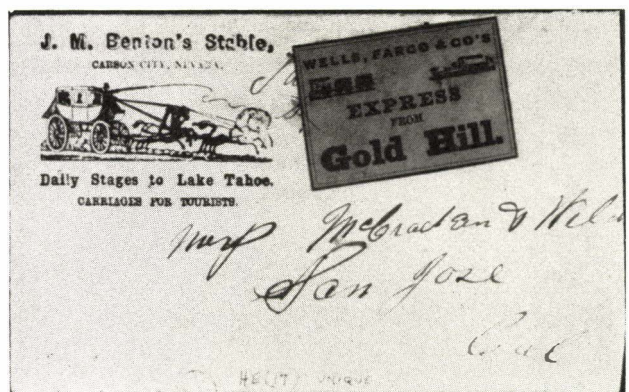 J. M. Benton's Stable,
CARSON CITY, NEVADA.
Daily Stages to Lake Tahoe.
CARRIAGES FOR TOURISTS.
WELLS, FARGO & CO'S
EXPRESS
FROM
Gold Hill.
McCracken &
San Jose
Cal
UNIQUE